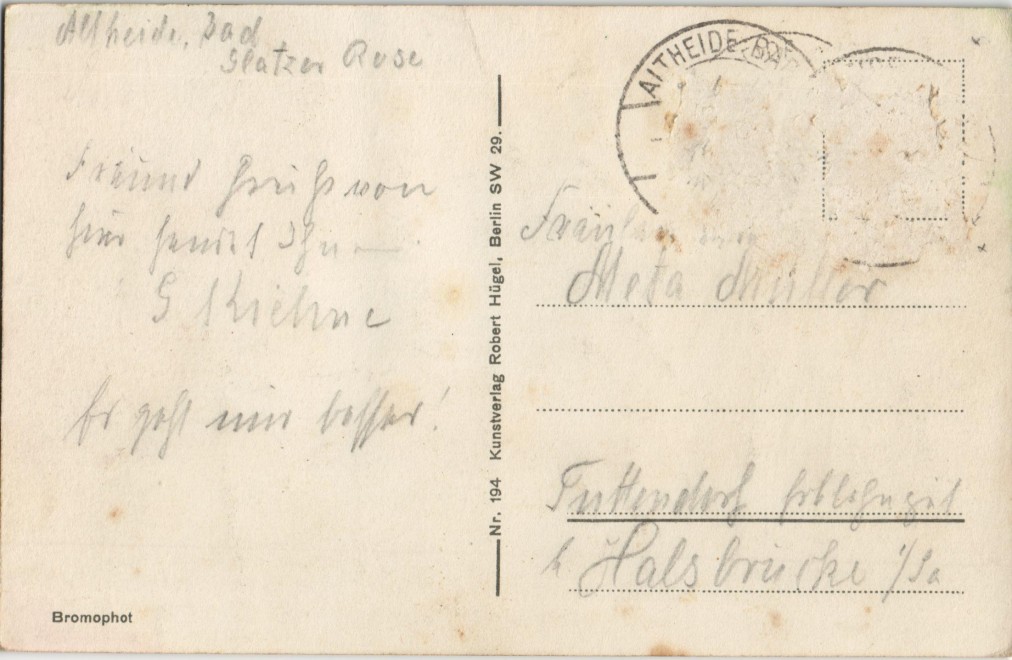 Altheide, Bad
Glatzer Rose
Freundl Grüße von
hier sendet Ihnen
G Kiehne
Es geht mir besser!
Nr. 194 Kunstverlag Robert Hügel, Berlin SW 29.
Bromophot
ALTHEIDE-BAD
Fräulein
Meta Müller
Tuttendorf Erblehngut
b Halsbrücke i/Sa